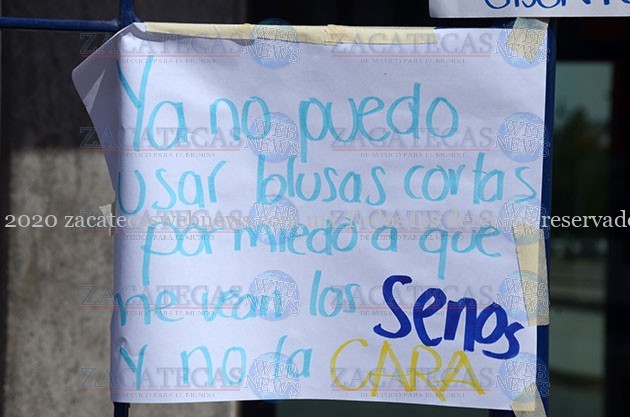 Ya no puedo
usar blusas cortas
por miedo a que
me vean los senos
y no la CARA
2020 zacatecas
reservado
ZACATECAS
WEB NEWS
DE MEXICO PARA EL MUNDO